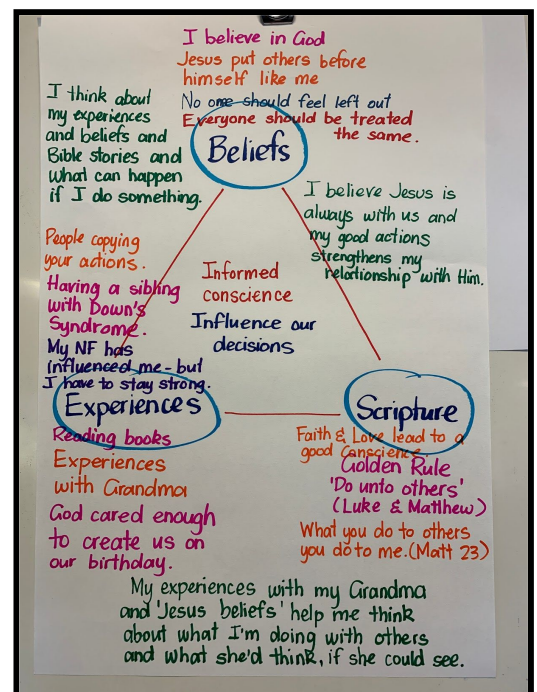 I believe in God
Jesus put others before
himself like me
No one should feel left out
Everyone should be treated
the same.
Beliefs
I think about
my experiences
and beliefs and
Bible stories and
what can happen
if I do something.
I believe Jesus is
always with us and
my good actions
strengthens my
relationship with Him.
People copying
your actions.
Having a sibling
with Down's
Syndrome.
My NF has
influenced me - but
I have to stay strong.
Informed
conscience
Influence our
decisions
Experiences
Reading books
Experiences
with Grandma
God cared enough
to create us on
our birthday.
Scripture
Faith & Love lead to a
good Conscience.
Golden Rule
'Do unto others'
(Luke & Matthew)
What you do to others
you do to me. (Matt 23)
My experiences with my Grandma
and 'Jesus beliefs' help me think
about what I'm doing with others
and what she'd think, if she could see.